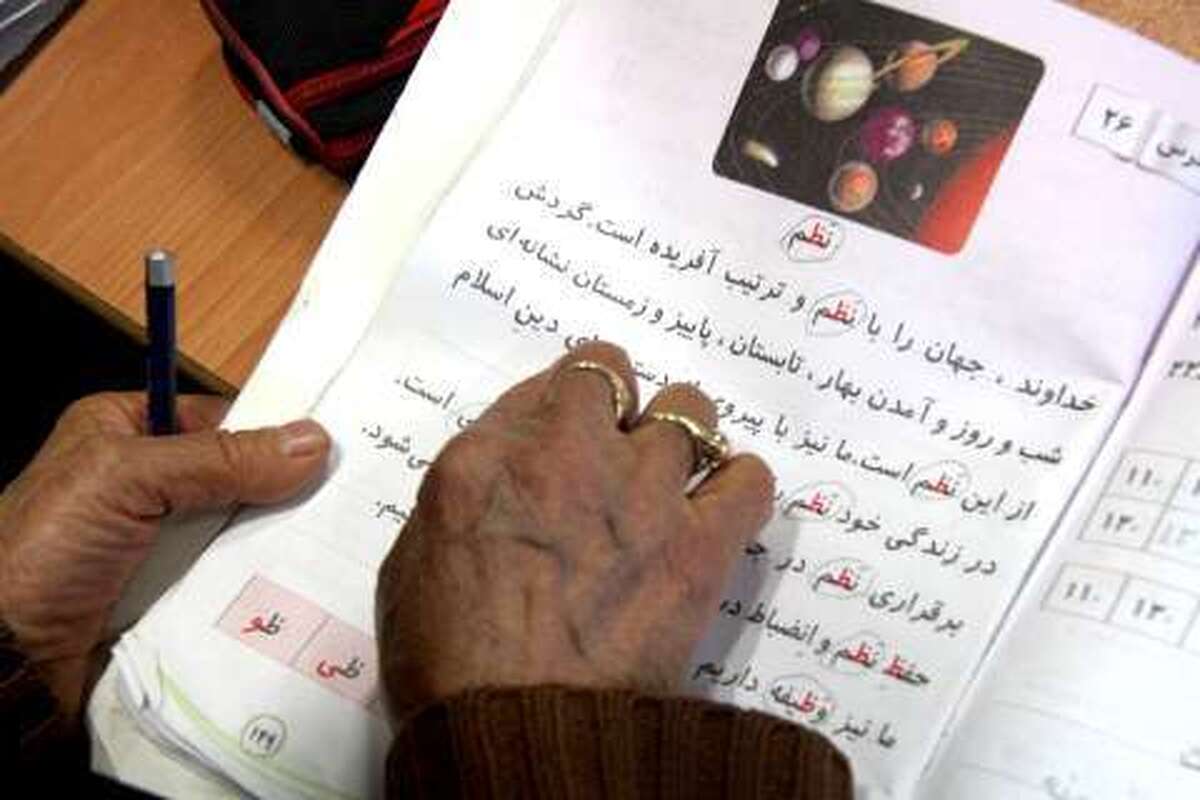 درس
۲۶
نَظم
خداوند ، جهان را با نَظم و ترتیب آفریده است. گردش
شب و روز و آمدن بهار ، تابستان ، پاییز و زمستان نشانه ای
از این نَظم است. ما نیز با پیروی از دین اسلام
در زندگی خود نَظم
برقراری نَظم در است.
حفظ نَظم و انضباط می شود.
ما نیز وظیفه داریم
ظی
ظو
۱۴۹
۱۱۰
۱۳۰
۱۱۰
۱۳۰